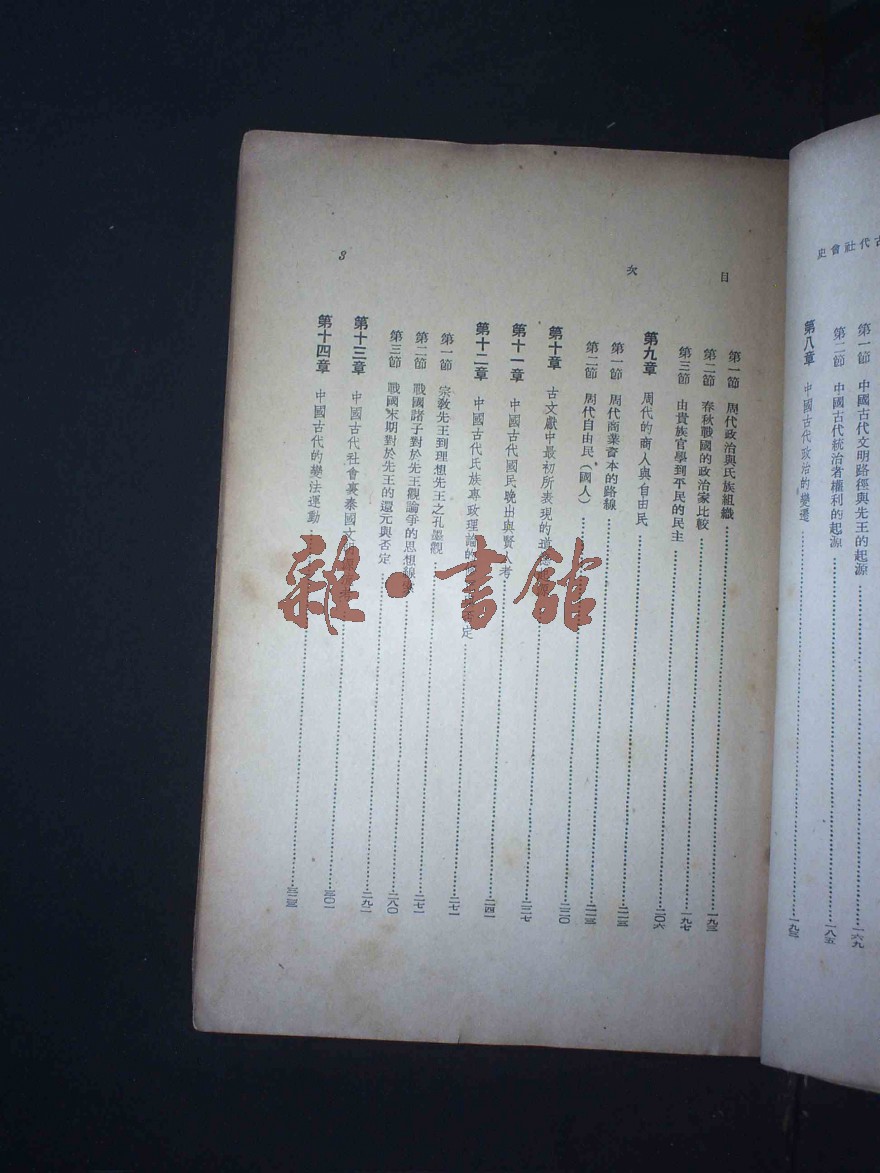 古代社會史
第一節 中國古代文明路徑與先王的起源……一六九
第二節 中國古代統治者權利的起源……一八五
第八章 中國古代政治的變遷……一九三
目次
第一節 周代政治與氏族組織……一九三
第二節 春秋戰國的政治家比較……一九七
第三節 由貴族官學到平民的民主
第九章 周代的商人與自由民……二〇六
第一節 周代商業資本的路線
第二節 周代自由民(國人)
第十章 古文獻中最初所表現的道德……二二〇
第十一章 中國古代國民晚出與賢人考……二二七
第十二章 中國古代氏族專政理論的 否定……二四一
第一節 宗教先王到理想先王之孔墨觀
第二節 戰國諸子對於先王觀論爭的思想線……二七一
第三節 戰國末期對於先王的還元與否定……二八〇
第十三章 中國古代社會裏秦國文……二九一
第十四章 中國古代的變法運動……三〇一
三二三
3
雜·書館